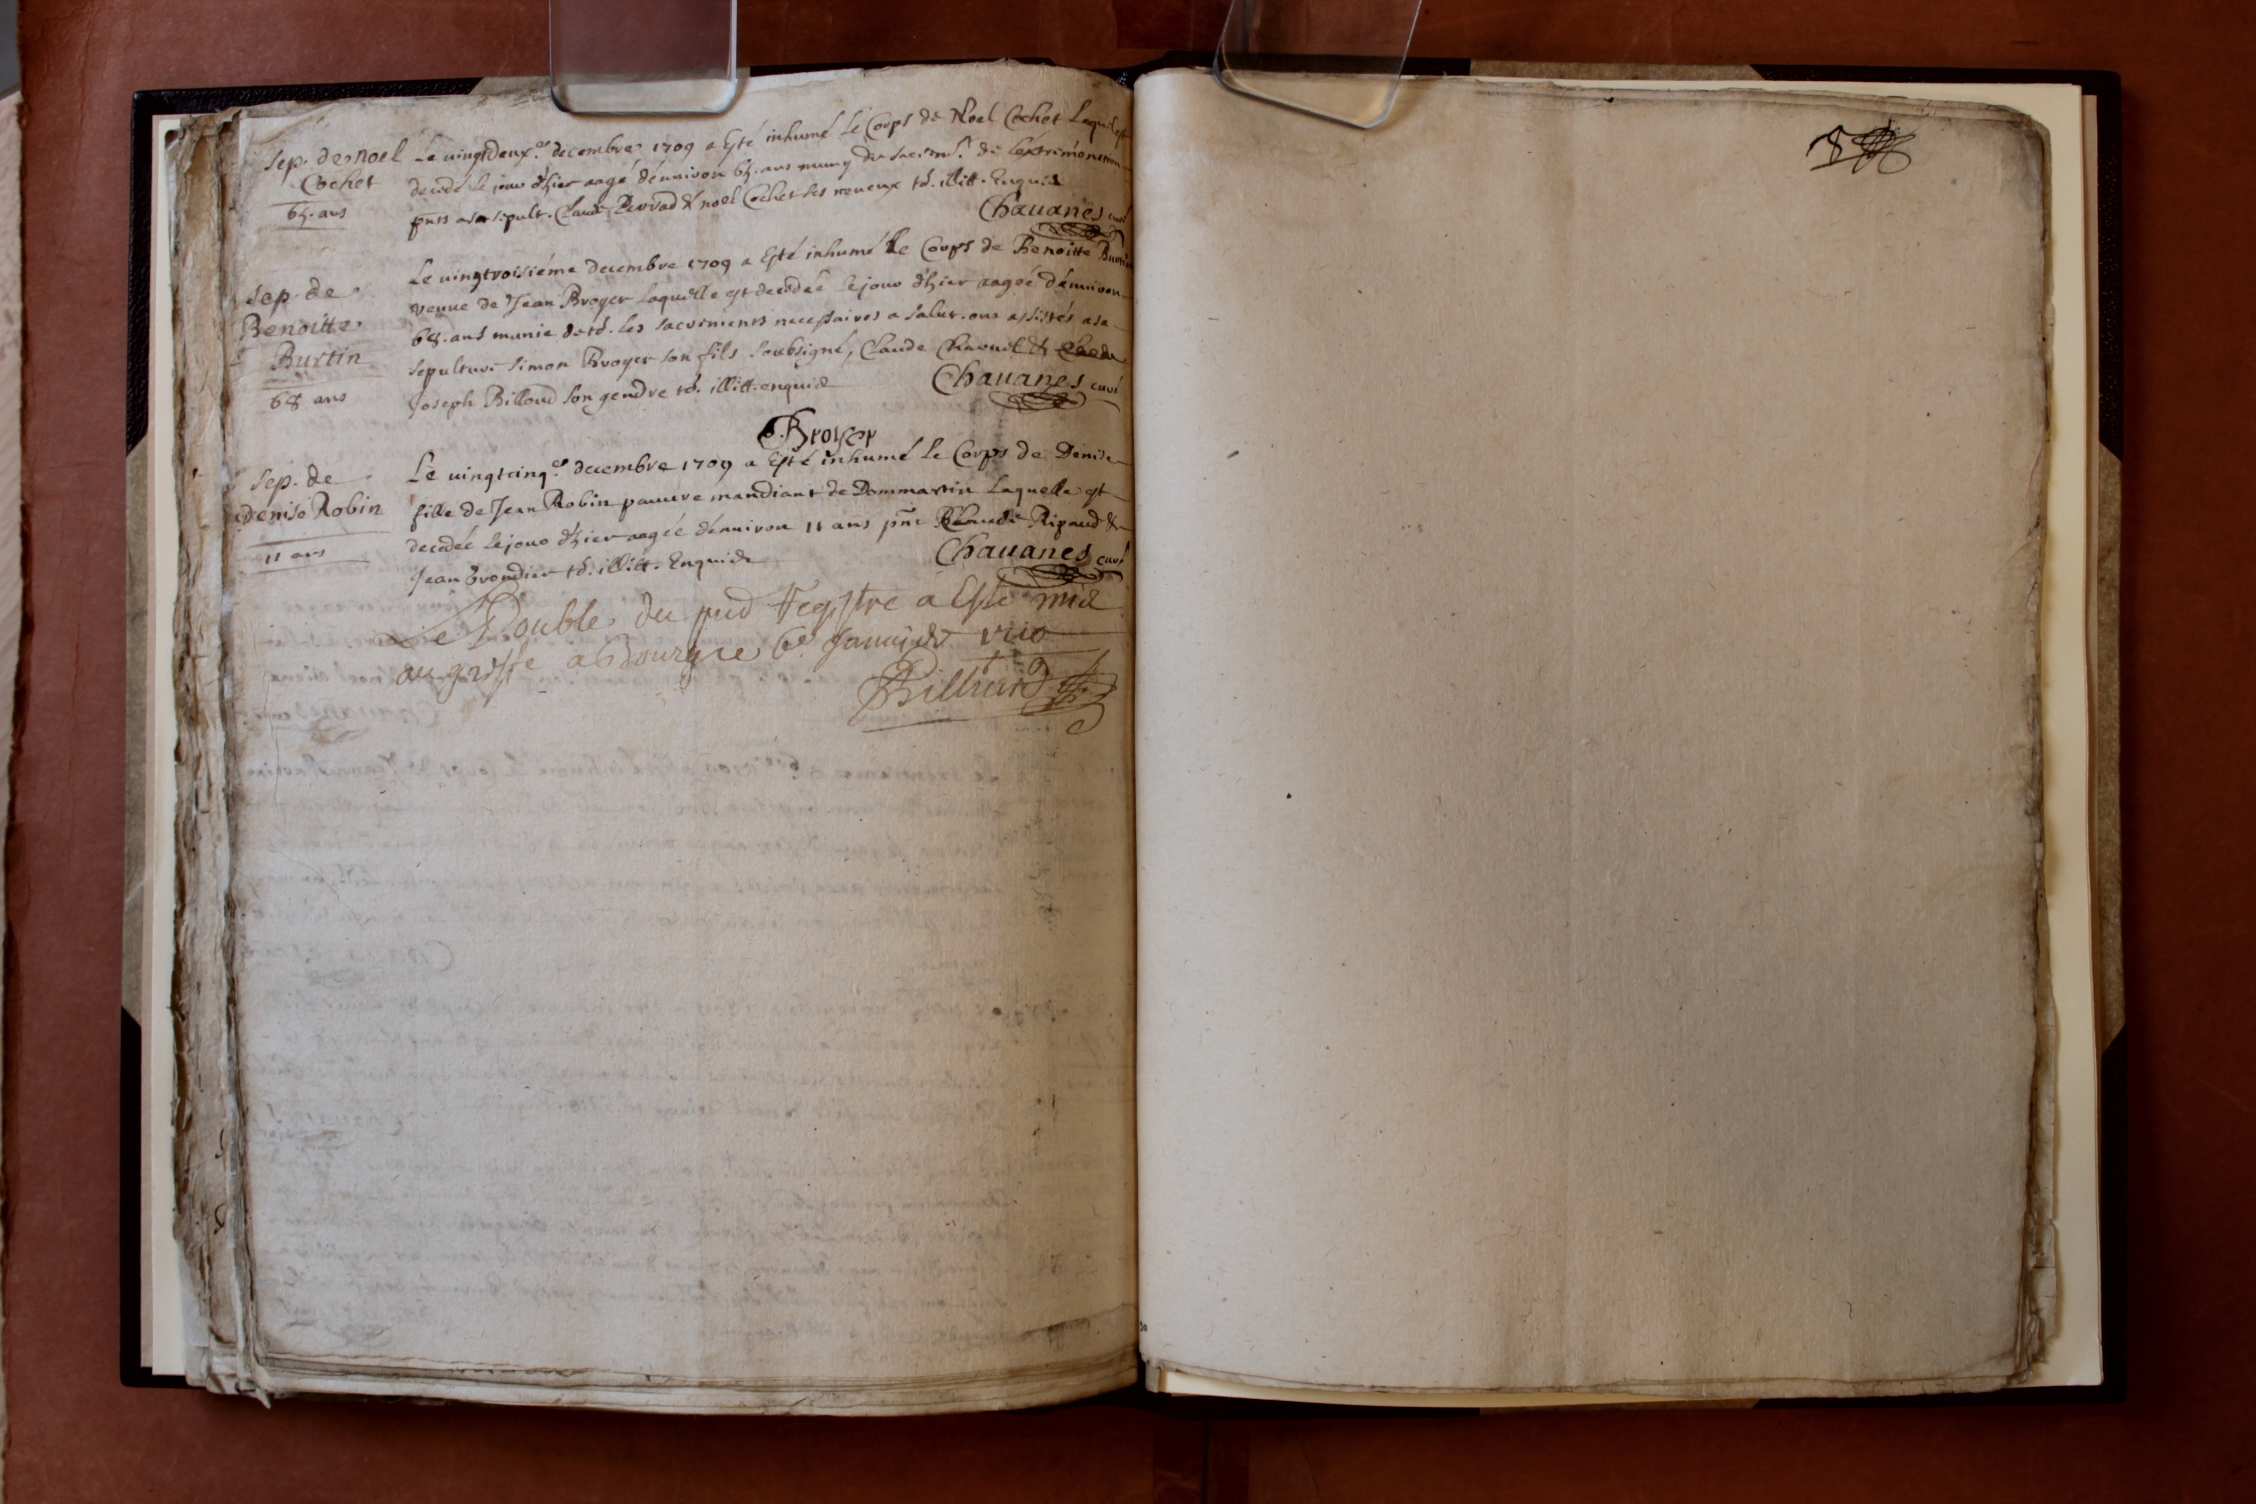 sep. de noel
Cochet
65. ans
Le vingtdeux.e decembre 1709 a Esté inhumé le Corps de Noel Cochet Lequel est
decedé le jour d'hier aagé d'environ 65. ans muny du sacrem.t de l'extrémonction
pnts a sa sepult. Claude Perrad & noel Cochet ses neveux td. illitt. Enquis
Chauanes curé
sep. de
Benoitte
Burtin
68 ans
Le vingtroisiéme decembre 1709 a Esté inhumé Le Corps de Benoitte Burtin
veuue de Jean Broyer Laquelle est decedée le jour d'hier aagée d'enuiron
68. ans munie de td. les sacrements necessaires a salut. ont assistés a sa
sepulture simon Broyer son fils soubsigné, Claude &
Joseph Billoud son gendre td. illitt. enquis
Chauanes curé
S. Broyer
sep. de
denise Robin
11 ans
Le vingtcinq.e decembre 1709 a Esté inhumé Le Corps de Denise
fille de Jean Robin pauure mandiant de Dommartin Laquelle est
decedée le jour d'hier aagée d'enuiron 11 ans pnt Claude Ripaud &
Jean brondier td. illitt. Enquis
Chauanes curé
Le Double du pnd Regstre a Esté mis
au greffe a Bourg ce 6e Januier 1710
Billiard
8